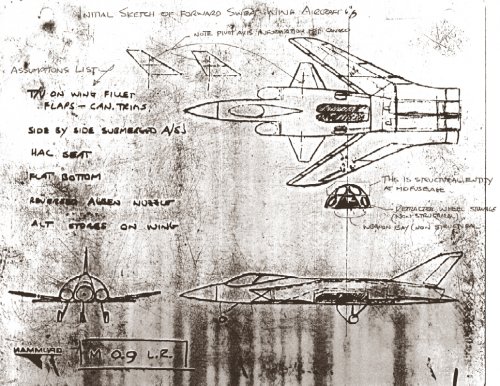 INITIAL SKETCH OF FORWARD SWEPT WING AIRCRAFT
NOTE PIVOT AXIS INFORMATION FOR CANARD
ASSUMPTIONS LIST
T/V ON WING FILLET
FLAPS - CAN. TRIMS.
SIDE BY SIDE SUBMERGED A/SJ
HAC. SEAT
FLAT BOTTOM
REVERSED ALBEN NOZZLE
ALT STORES ON WING
THIS IS STRUCTURAL ENTITY
AT MID FUSELAGE
WHEEL STOWAGE
(NON STRUCTURAL
WEAPON BAY (NON STRUCTURAL
HAMMOND
M 0.9 L.R.